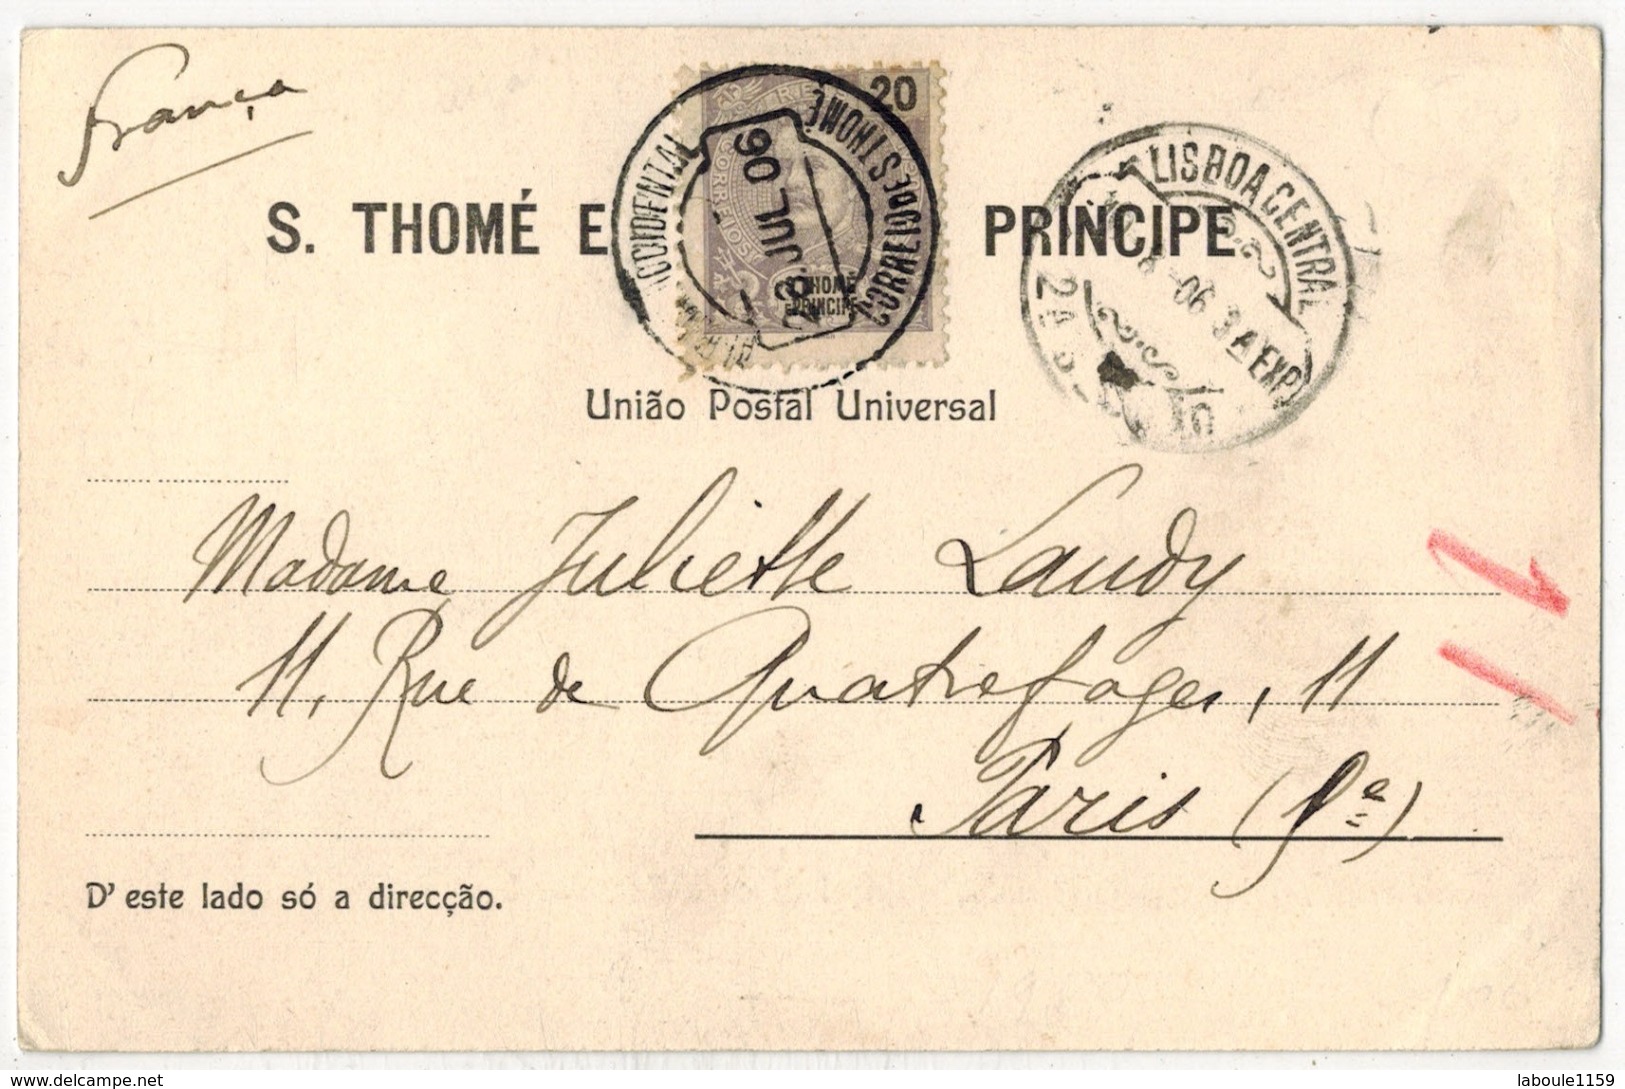 França
20
CORREIOS
S. THOMÉ
E PRINCIPE
CORREIO DE S. THOMÉ
28 JUL 06
OCCIDENTAL
LISBOA CENTRAL
06 3 A EXP
2ª S
S. THOMÉ E PRINCIPE
União Postal Universal
Madame Juliette Landy
11, Rue de Quatrefages, 11
Paris (5e)
D'este lado só a direcção.
www.delcampe.net
laboule1159